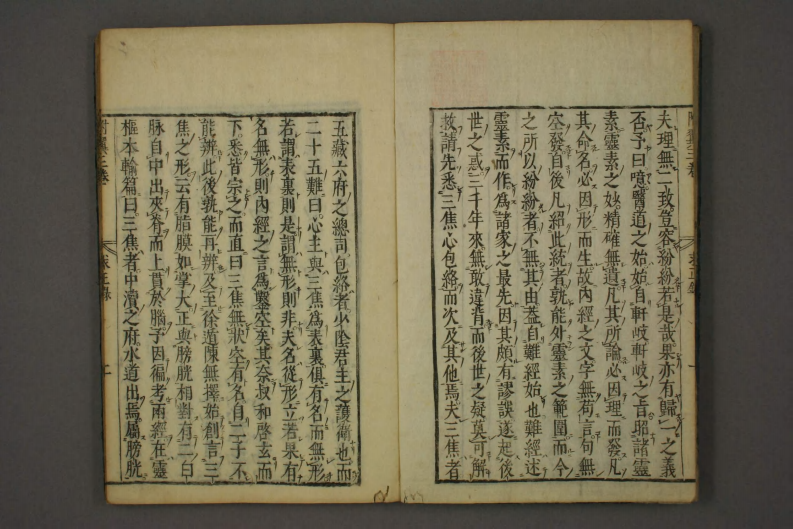 夫理無二致豈容紛紛若是哉果亦有歸一之義
否予曰噫醫道之始始自軒岐軒岐之旨昭諸靈
素靈素之妙精確無遺凡其所論必因理而發凡
其命名必因形而生故內經之文字無苟言句無
空發自後凡紹此統者孰能外靈素之範圍而今
之所以紛紛者不無其由蓋自難經始也難經述
靈素而作為諸家之最先因其頗有謬誤遂起後
世之惑三千年來無敢違背而後世之疑莫可解
救請先悉三焦心包絡而次及其他焉夫三焦者
五藏六府之總司包絡者少陰君主之護衛也而
二十五難曰心主與三焦為表裏俱有名而無形
若謂表裏則是謂無形則非夫名從形立若果有
名無形則內經之言為鑿空矣其奈叔和啓玄而
下悉皆宗之而直曰三焦無狀空有名自二子不
能辨此後孰能再辨及至徐遁陳無擇始創言三
焦之形云有脂膜如掌大正與膀胱相對有二白
脉自中出夾脊而上貫於腦予因徧考兩經在靈
樞本輸篇曰三焦者中瀆之府水道出焉屬膀胱
附翼三卷
求正錄
一